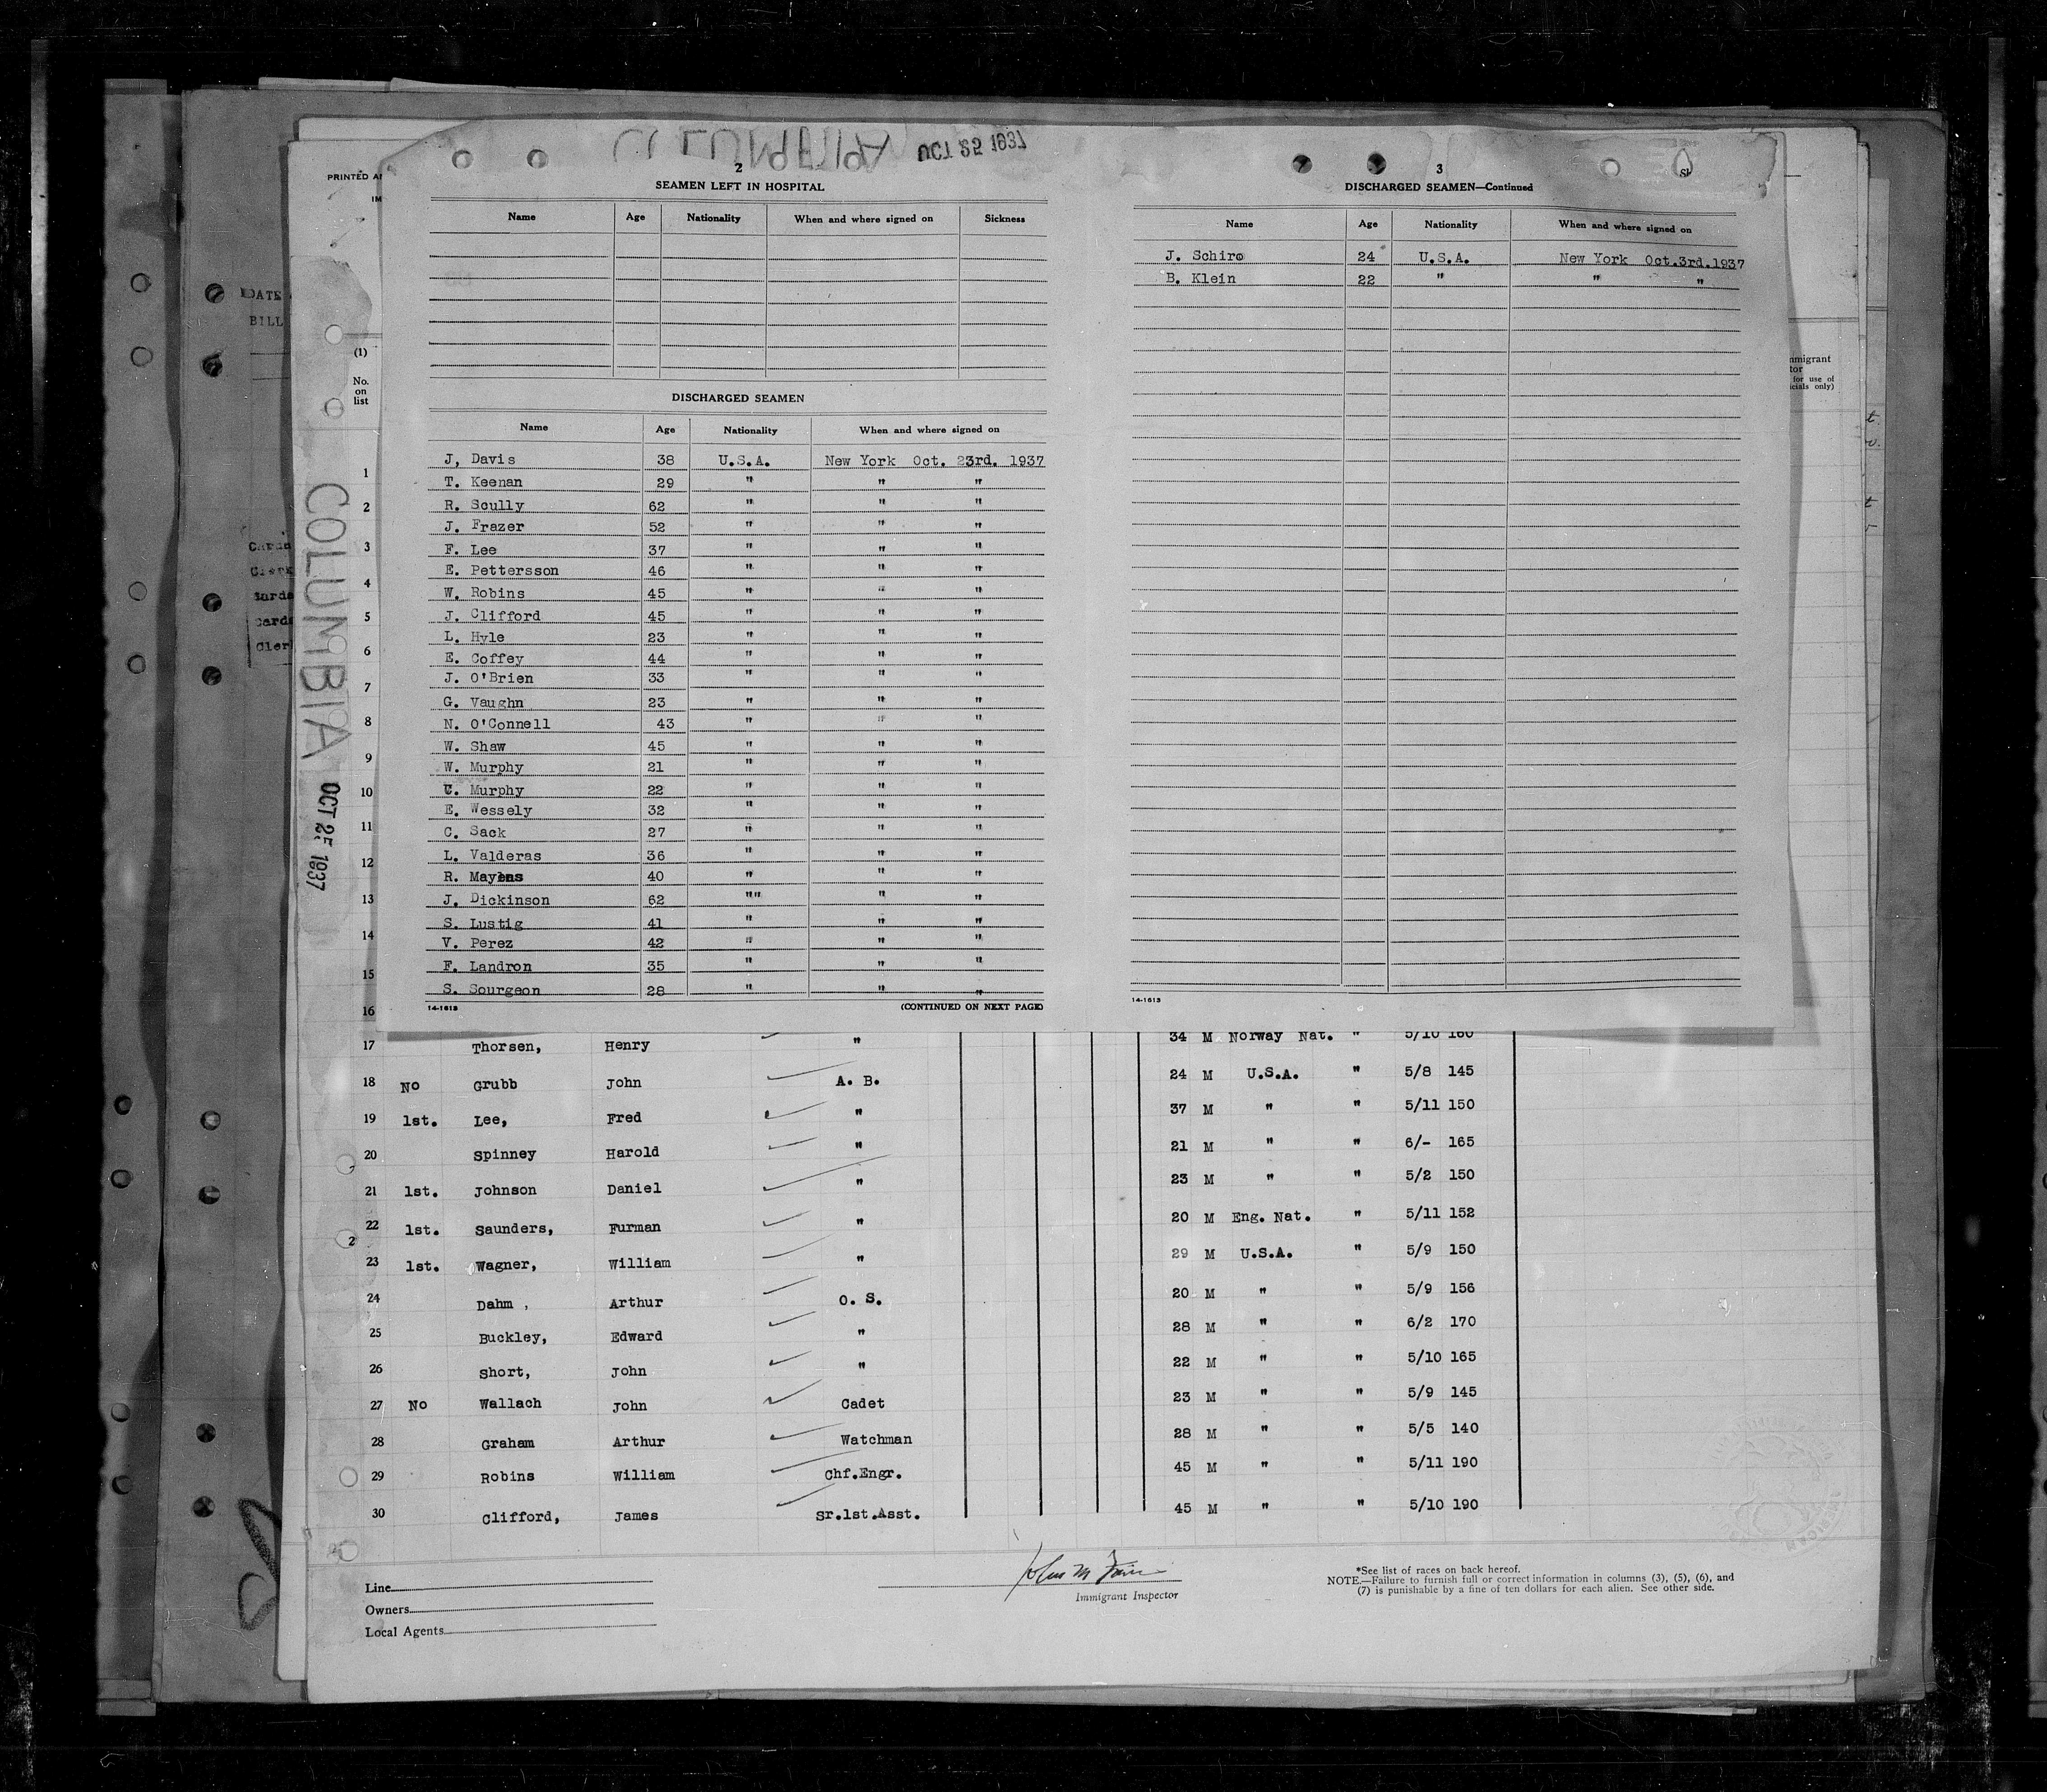 COLUMBIA OCT 25 1937
PRINTED
2
SEAMEN LEFT IN HOSPITAL
Name Age Nationality When and where signed on Sickness
DISCHARGED SEAMEN
Name Age Nationality When and where signed on
J, Davis 38 U.S.A. New York Oct. 23rd. 1937
T. Keenan 29 " " "
R. Scully 62 " " "
J. Frazer 52 " " "
F. Lee 37 " " "
E. Pettersson 46 " " "
W. Robins 45 " " "
J. Clifford 45 " " "
L. Hyle 23 " " "
E. Coffey 44 " " "
J. O'Brien 33 " " "
G. Vaughn 23 " " "
N. O'Connell 43 " " "
W. Shaw 45 " " "
W. Murphy 21 " " "
C. Murphy 22 " " "
E. Wessely 32 " " "
C. Sack 27 " " "
L. Valderas 36 " " "
R. 40 " " "
J. Dickinson 62 "" " "
S. Lustig 41 " " "
V. Perez 42 " " "
F. Landron 35 " " "
S. Sourgeon 28 " " "
14-1613 (CONTINUED ON NEXT PAGE)
3
DISCHARGED SEAMEN—Continued
Name Age Nationality When and where signed on
J. Schiro 24 U.S.A. New York Oct.3rd.1937
B. Klein 22 " " "
14-1613
DATE
BILL
(1)
No.
on
list
for use of
only)
COLUMBIA
OCT 1937
1
2
3
4
5
6
7
8
9
10
11
12
13
14
15
16
17 Thorsen, Henry " 34 M Norway Nat. " 5/10 160
18 No Grubb John A. B. 24 M U.S.A. " 5/8 145
19 1st. Lee, Fred " 37 M " " 5/11 150
20 Spinney Harold " 21 M " " 6/- 165
21 1st. Johnson Daniel " 23 M " " 5/2 150
22 1st. Saunders, Furman " 20 M Eng. Nat. " 5/11 152
23 1st. Wagner, William " 29 M U.S.A. " 5/9 150
24 Dahm, Arthur O. S. 20 M " " 5/9 156
25 Buckley, Edward " 28 M " " 6/2 170
26 Short, John " 22 M " " 5/10 165
27 No Wallach John Cadet 23 M " " 5/9 145
28 Graham Arthur Watchman 28 M " " 5/5 140
29 Robins William Chf.Engr. 45 M " " 5/11 190
30 Clifford, James Sr.1st.Asst. 45 M " " 5/10 190
Line
Owners
Local Agents
Immigrant Inspector
*See list of races on back hereof.
NOTE.—Failure to furnish full or correct information in columns (3), (5), (6), and
(7) is punishable by a fine of ten dollars for each alien. See other side.